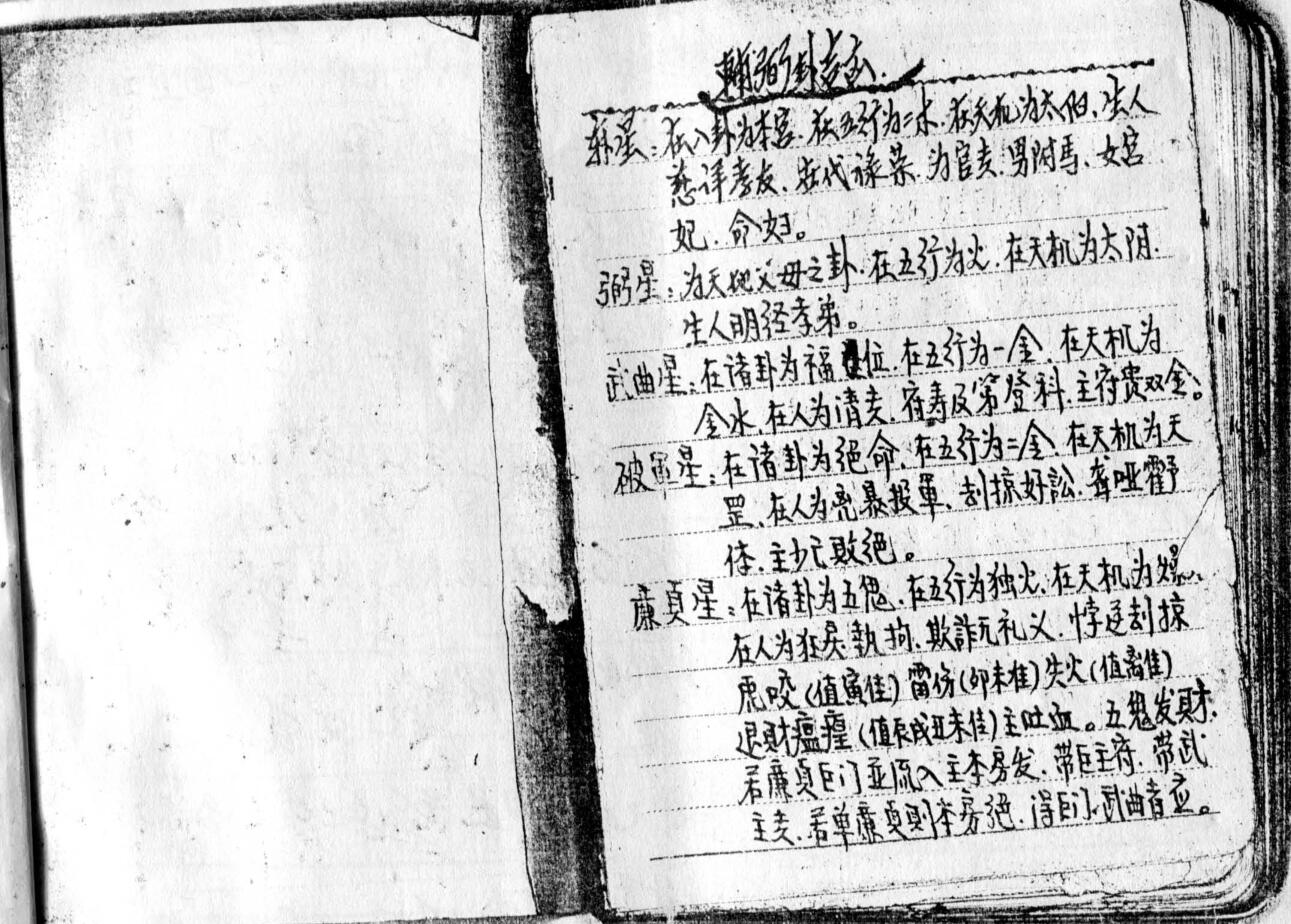 辅弼卦主玄
辅星:在八卦为本宫.在五行为二水.在天机为太阳.生人
慈祥孝友.在代禄荣.为官贵.男附馬.女宫
妃.命妇。
弼星:为天地父母之卦.在五行为火.在天机为太阴.
生人明经孝弟。
武曲星:在诸卦为福位.在五行为一金.在天机为
金水.在人为清贵.府寿及第登科.主府贵双全。
破軍星:在诸卦为绝命.在五行为二金.在天机为天
罡.在人为兇暴投軍.刦掠好訟.聋哑
体.主少亡敗绝。
廉貞星:在诸卦为五鬼.在五行为独火.在天机为
在人为狂戾執拘.欺詐无礼义.悖逆刦掠
虎咬(值寅佳)雷伤(卯未佳)失火(值离佳)
退財瘟瘴(值辰戍丑未佳)主吐血。五鬼发財.
若廉貞巨门並流入主本房发.帶巨主府.帶武
主贵.若单廉貞則本房绝.得巨门.武曲者应。